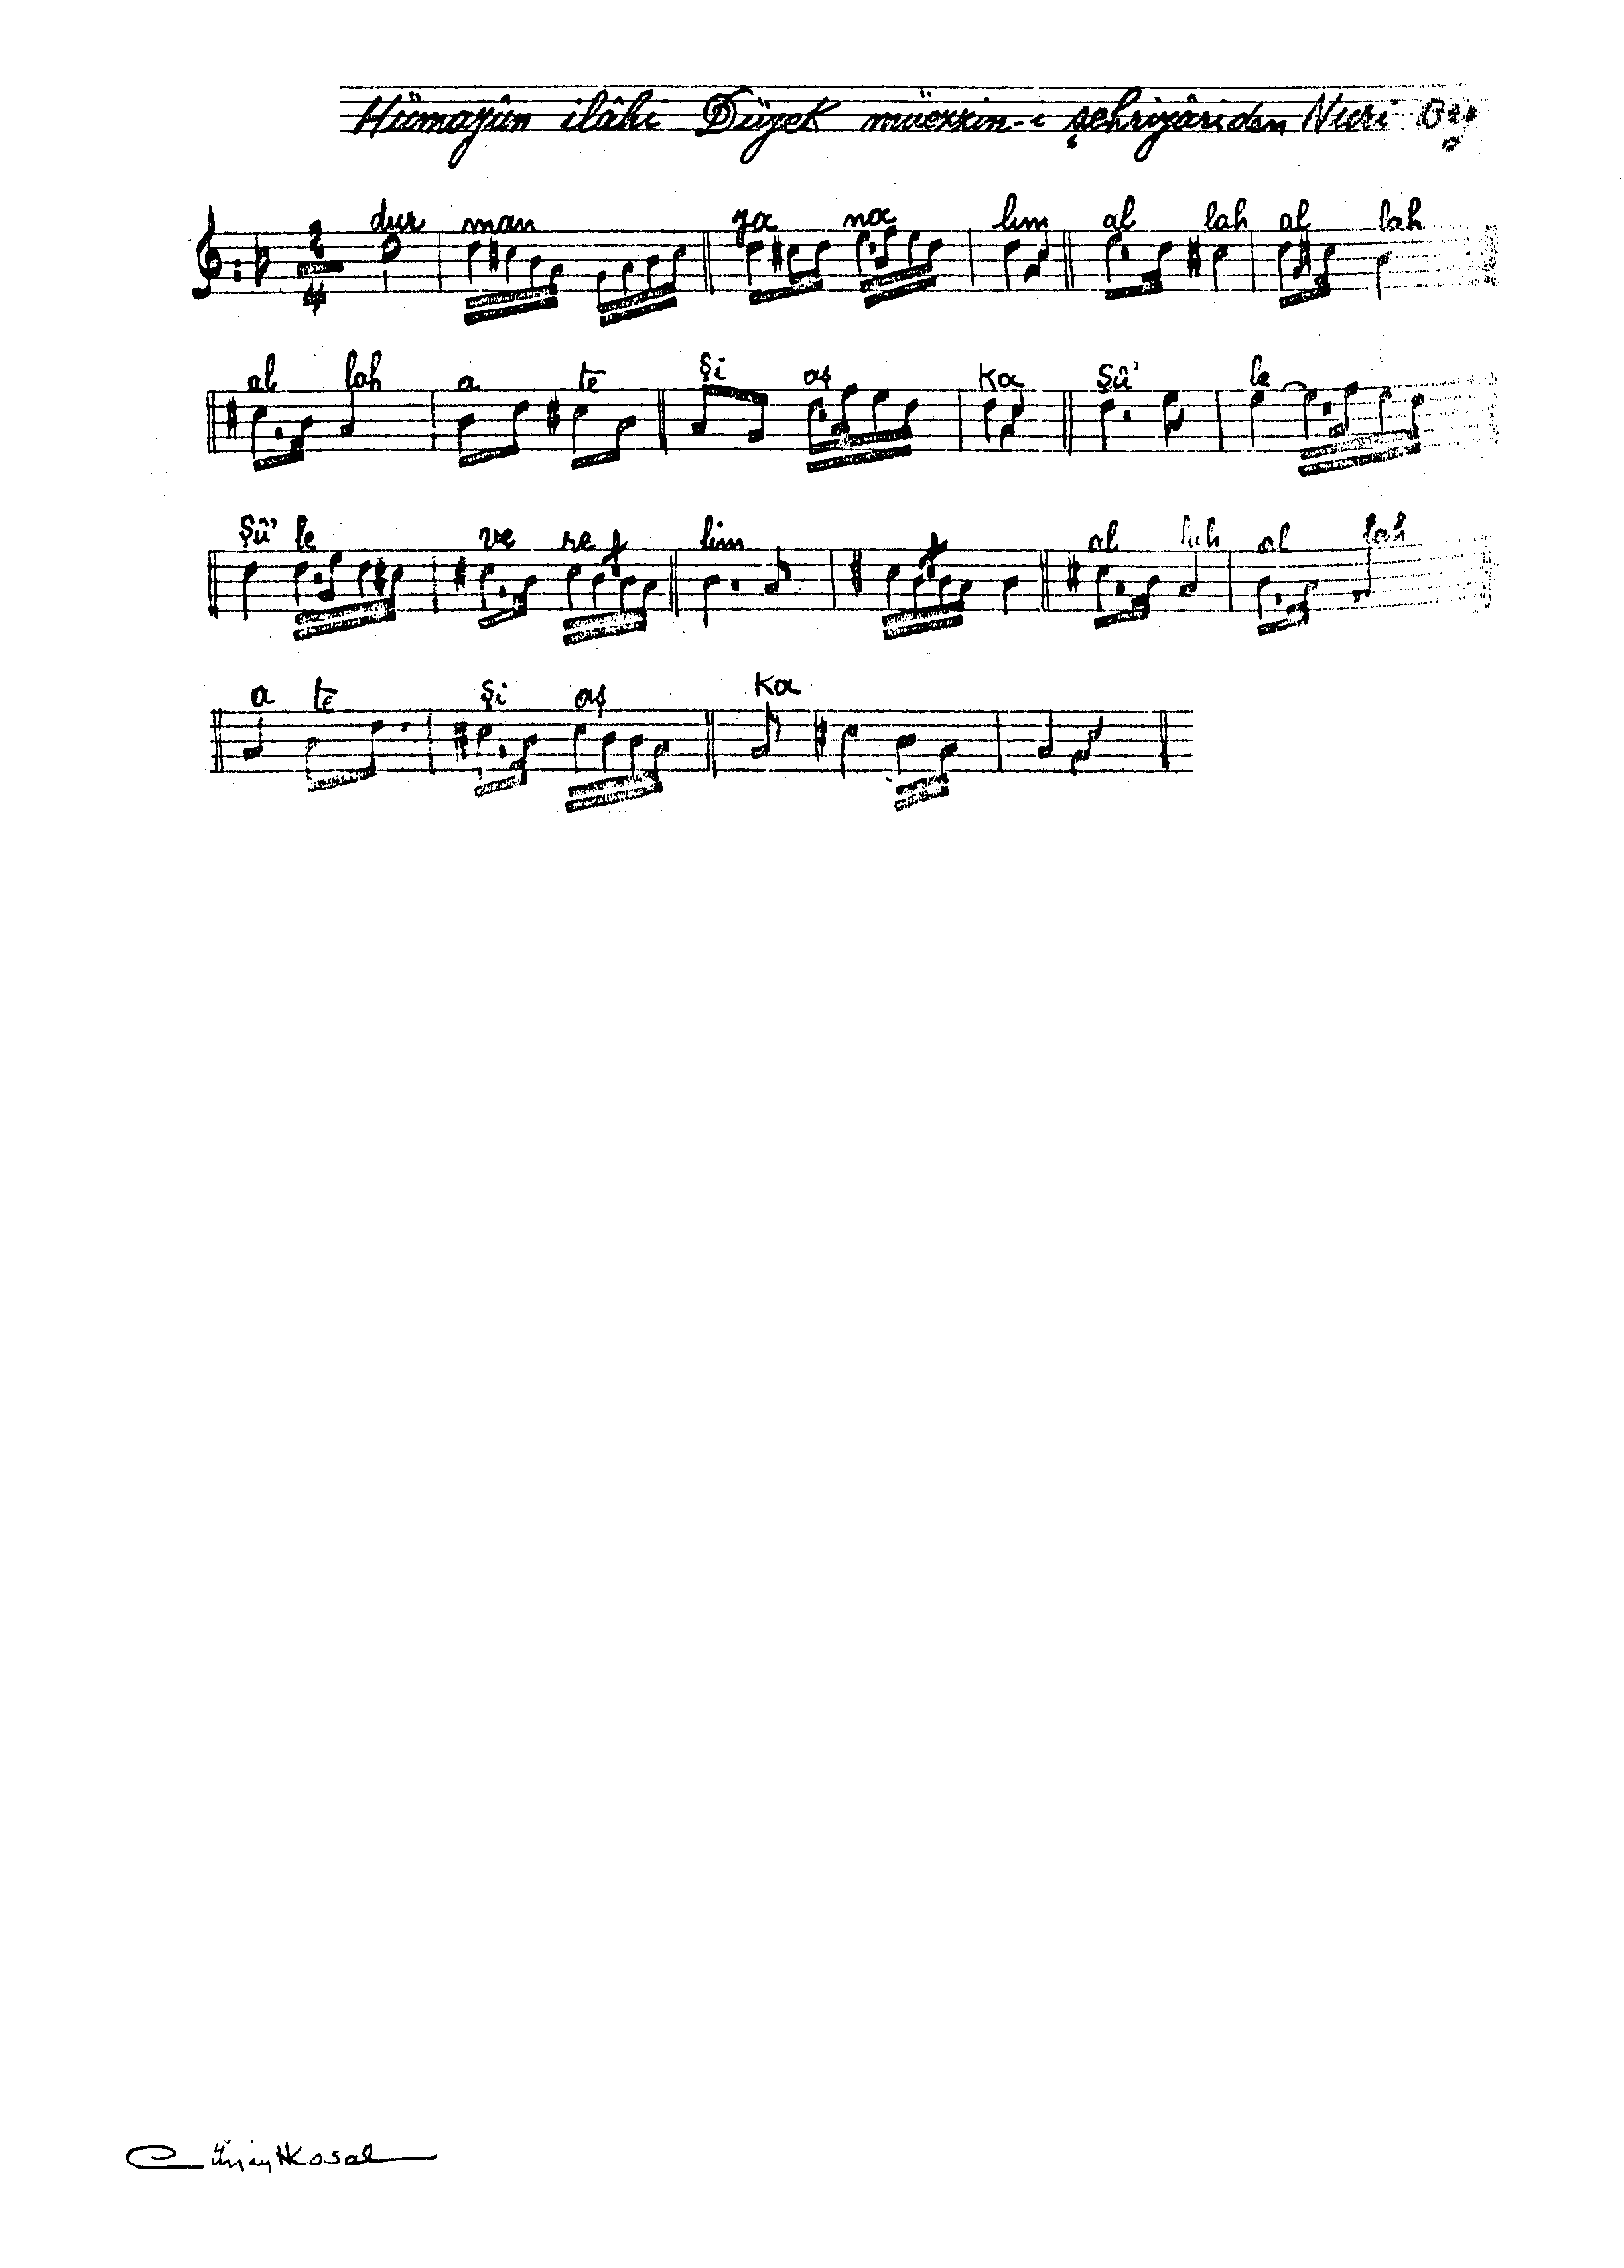 Hümayûn ilâhi Düyek müezzin-i şehriyâriden Nuri
2
4
dur man ya na lım al lah al lah
al lah a te şi aş ka şû' le
şû' le ve re lim al lah al lah
a te şi aş ka
Cüneyt Kosal